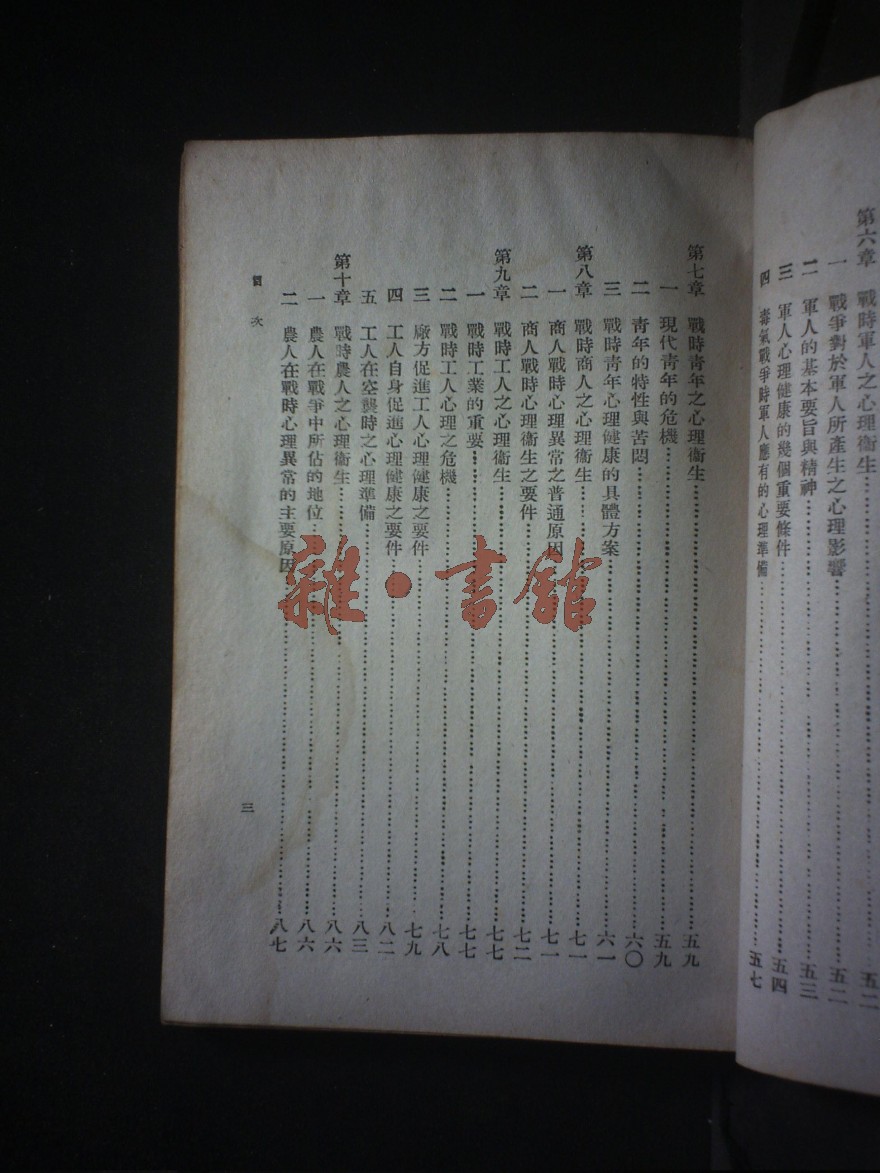 第六章　戰時軍人之心理衞生……五二
一　戰爭對於軍人所產生之心理影響……五二
二　軍人的基本要旨與精神……五三
三　軍人心理健康的幾個重要條件……五四
四　毒氣戰爭時軍人應有的心理準備……五七
第七章　戰時靑年之心理衞生……五九
一　現代靑年的危機……五九
二　靑年的特性與苦悶……六〇
三　戰時靑年心理健康的具體方案……六一
第八章　戰時商人之心理衞生……七一
一　商人戰時心理異常之普通原因……七一
二　商人戰時心理衞生之要件……七二
第九章　戰時工人之心理衞生……七七
一　戰時工業的重要……七七
二　戰時工人心理之危機……七八
三　廠方促進工人心理健康之要件……七九
四　工人自身促進心理健康之要件……八二
五　工人在空襲時之心理準備……八三
第十章　戰時農人之心理衞生……八六
一　農人在戰爭中所佔的地位……八六
二　農人在戰時心理異常的主要原因……八七
目次
三
雜·書館